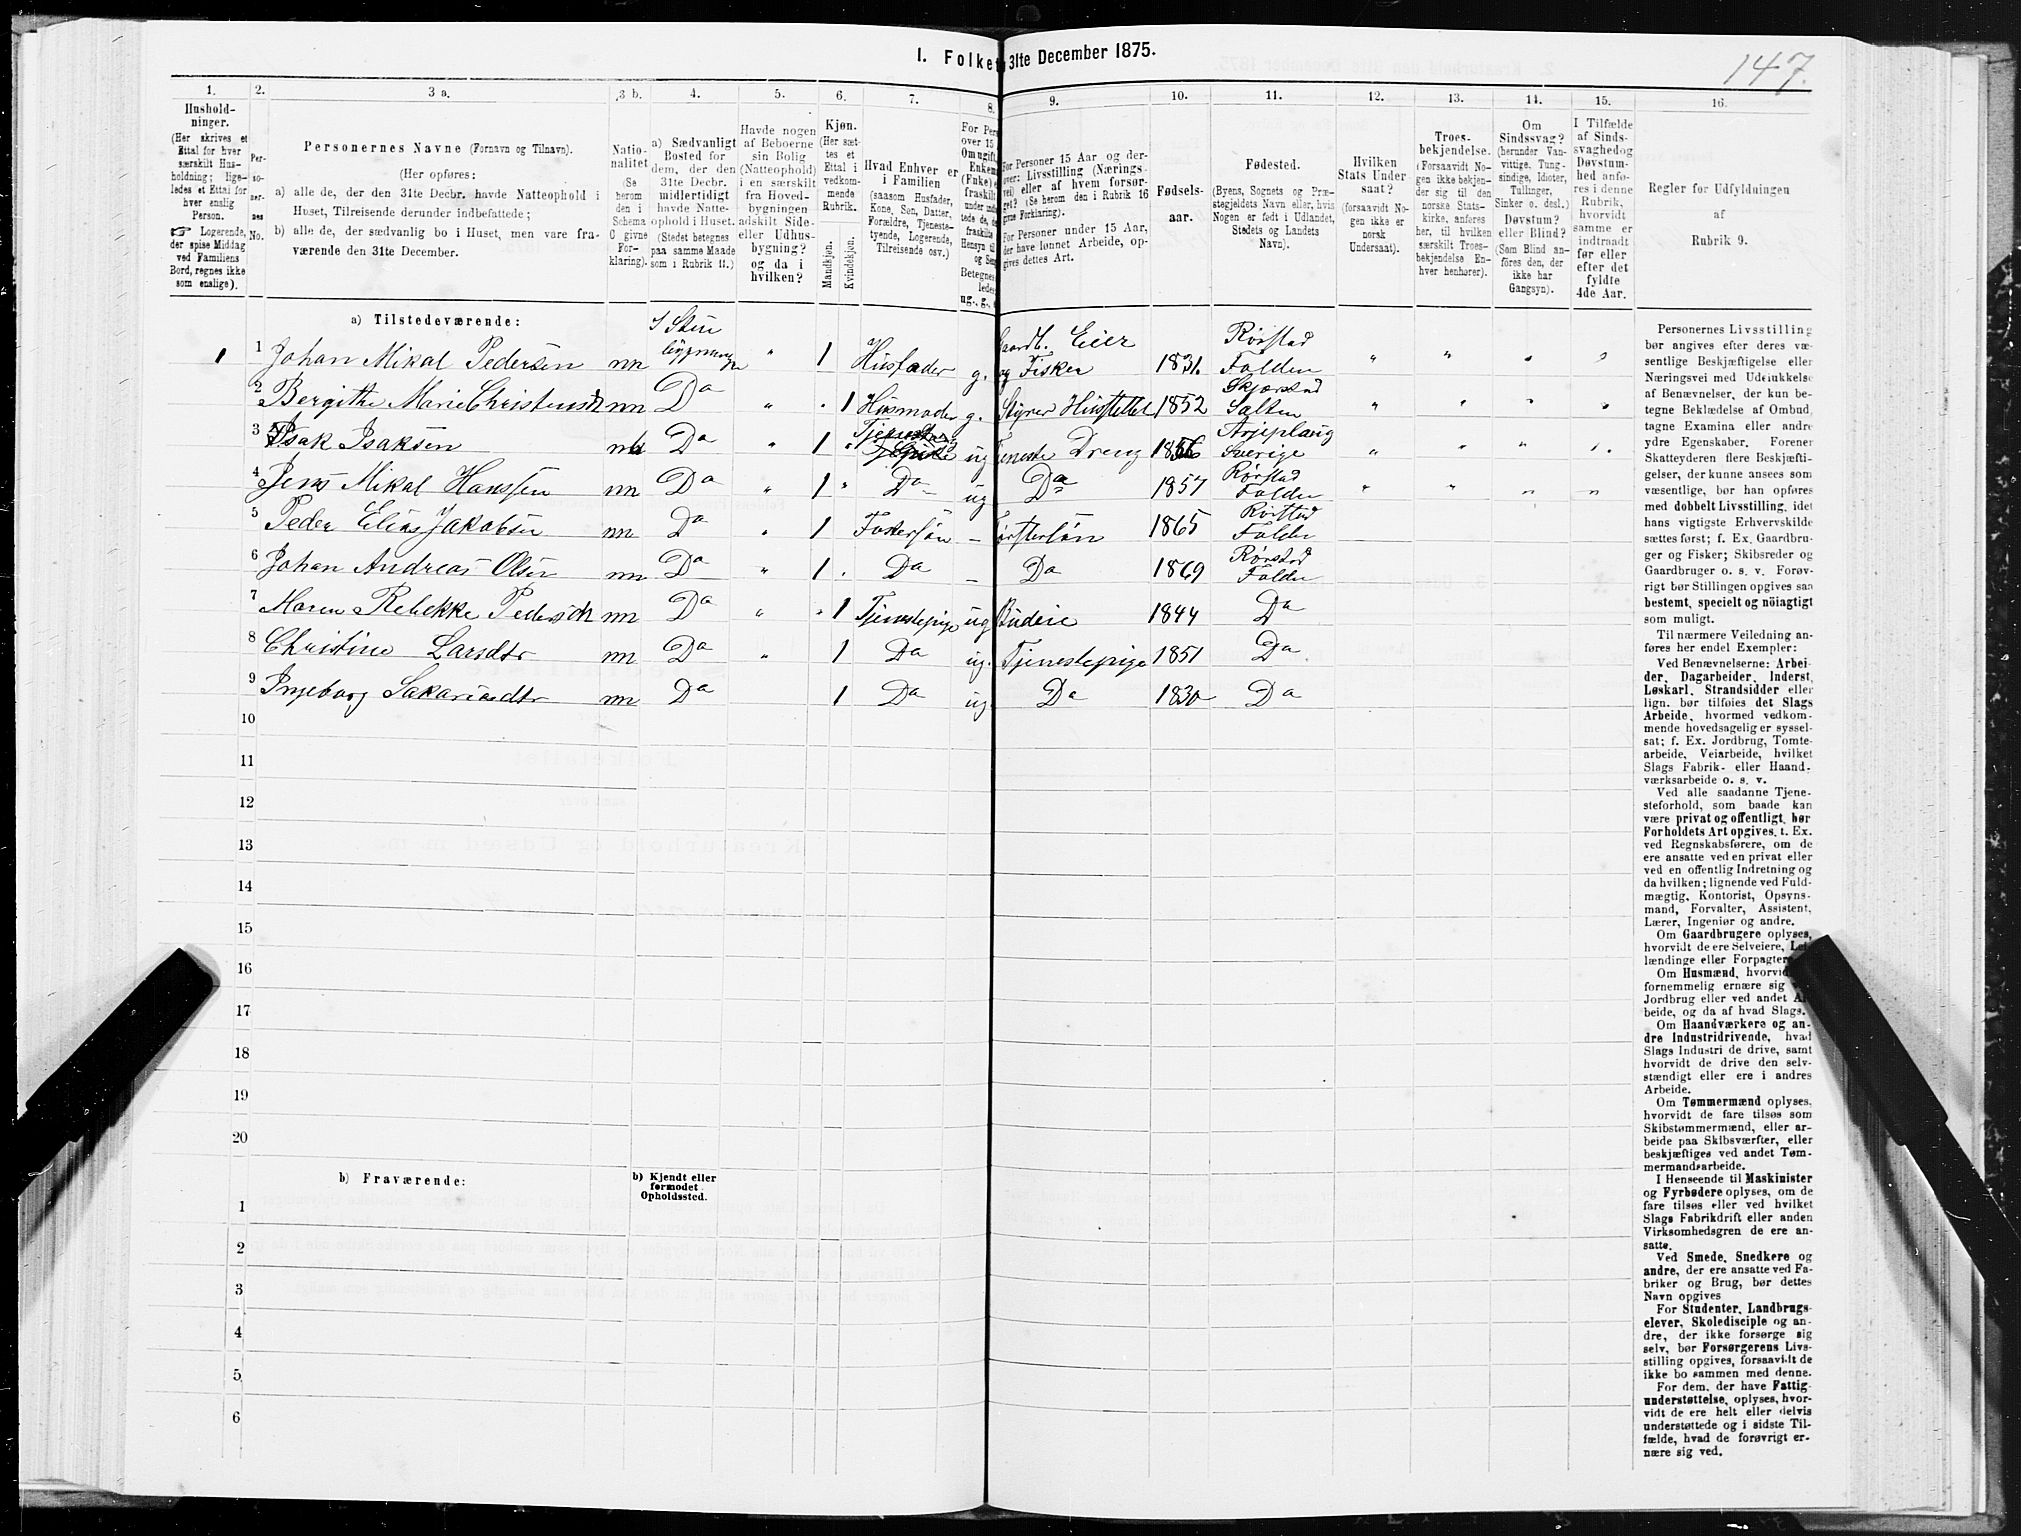 147.
I. Folket
31te December 1875.
1.
Hushold-
ninger.
(Her skrives et
Ettal for hver
særskilt Hus-
holdning; lige-
ledes et Ettal for
hver enslig
Person.
☞ Logerende,
der spise Middag
ved Familiens
Bord, regnes ikke
som enslige).
2.
Per-
so-
ner-
nes
No.
3 a.
Personernes Navne (Fornavn og Tilnavn).
(Her opføres:
a) alle de, der den 31te Decbr. havde Natteophold i
Huset, Tilreisende derunder indbefattede;
b) alle de, der sædvanlig bo i Huset, men vare fra-
værende den 31te December.
3 b.
Natio-
nalitet
(Se
herom
den i
Schema
O givne
For-
klaring).
4.
a) Sædvanligt
Bosted for
dem, der den
31te Decbr.
midlertidigt
havde Natte-
ophold i Huset.
(Stedet betegnes
paa samme Maade
som i Rubrik 11.)
5.
Havde nogen
af Beboerne
sin Bolig
(Natteophold)
i en særskilt
fra Hoved-
bygningen
adskilt Side-
eller Udhus-
bygning?
og da i
hvilken?
6.
Kjøn.
(Her sæt-
tes et
Ettal i
vedkom-
mende
Rubrik.
Mandkjøn.
Kvindekjøn.
7.
Hvad Enhver er
i Familien
(saasom Husfader,
Kone, Søn, Datter,
Forældre, Tjeneste-
tyende, Logerende,
Tilreisende osv.)
8.
For Pers
over 15
Om ugift,
Enkem
(Fuke)
fraskilt
Betegnes
ledes
ug., g.,
9.
For Personer 15 Aar og der-
over: Livsstilling (Nærings-
vei) eller af hvem forsør-
get? (Se herom den i Rubrik 16
givne Forklaring).
For Personer under 15 Aar,
der have lønnet Arbeide, op-
gives dettes Art.
10.
Fødsels-
aar.
11.
Fødested.
(Byens, Sognets og Præ-
stegjeldets Navn eller, hvis
Nogen er født i Udlandet,
Stedets og Landets
Navn).
12.
Hvilken
Stats Under-
saat?
(forsaavidt No-
gen ikke er
norsk
Undersaat).
13.
Troes-
bekjendelse.
(Forsaavidt No-
gen ikke bekjen-
der sig til den
norske Stats-
kirke, anføres
her, til hvilken
særskilt Troes-
bekjendelse En-
hver henhører).
14.
Om
Sindssvag?
(herunder Van-
vittige, Tung-
sindige, Idioter,
Tullinger,
Sinker o. desl.)
Døvstum?
eller Blind?
(Som Blind an-
føres den, der
ikke har
Gangsyn).
15.
I Tilfælde
af Sinds-
svaghed og
Døvstum-
hed anfø-
res i denne
Rubrik,
hvorvidt
samme er
indtraadt
før eller
efter det
fyldte
4de Aar.
16.
Regler for Udfyldningen
af
Rubrik 9.
a) Tilstedeværende:
1 1 Johan Mikal Pedersen nn " 1 Husfader g. Gaardb. Eier og Fisker 1831 Rørstad Folden " " " "
2 Bergithe Marie Christensdtr nn Do " " 1 Husmoder g. Styrer Husstellet 1852 Skjærstad Salten " " " "
3 Isak Isaksen Do " 1 " ug Tjeneste Dreng Arjeplaug Sverige " " " "
4 Jens Mikal Hanssen nn Do " 1 " Do ug Do 1857 Rørstad Folden " " " "
5 Peder Elias Jakobsen nn Do " 1 Fostersøn – Forstersøn 1865 Rørstad Folden
6 Johan Andreas Olsen nn Do " 1 . Do – Do 1869 Rørstad Folden
7 Maren Rebekke Pedersdtr nn Do " " 1 Tjenestepige ug Budeie 1844 Do
8 Christine Larsdtr nn Do " 1 Do ug. Tjenestepige 1851 Do
9 Ingeborg Sakariasdtr nn Do 1 Do ug. Do 1830 Do
10
11
12
13
14
15
16
17
18
19
20
b) Fraværende:
b) Kjendt eller
formodet
Opholdssted.
1
2
3
4
5
6
Personernes Livsstilling
bør angives efter deres væ-
sentlige Beskjæftigelse eller
Næringsvei med Udelukkelse
af Benævnelser, der kun be-
tegne Beklædelse af Ombud,
tagne Examina eller andre
ydre Egenskaber. Forener
Skatteyderen flere Beskjæfti-
gelser, der kunne ansees som
væsentlige, bør han opføres
med dobbelt Livsstilling, idet
hans vigtigste Erhvervskilde
sættes først; f. Ex. Gaardbru-
ger og Fisker; Skibsreder og
Gaardbruger o. s. v. Forøv-
rigt bør Stillingen opgives saa
bestemt, specielt og nöiagtigt
som muligt.
Til nærmere Veiledning an-
føres her endel Exempler:
Ved Benævnelserne: Arbei-
der, Dagarbeider, Inderst,
Løskarl, Strandsidder eller
lign. bør tilføies det Slags
Arbeide, hvormed vedkom-
mende hovedsagelig er syssel-
sat; f. Ex. Jordbrug, Tomte-
arbeide, Veiarbeide, hvilket
Slags Fabrik- eller Haand-
værksarbeide o. s. v.
Ved alle saadanne Tjene-
steforhold, som baade kan
være privat og offentligt, bør
Forholdets Art opgives, t. Ex.
ved Regnskabsførere, om de
ere ansatte ved en privat eller
ved en offentlig Indretning og
da hvilken; lignende ved Fuld-
mægtig, Kontorist, Opsyns-
mand, Forvalter, Assistent,
Lærer, Ingeniør og andre.
Om Gaardbrugere oplyses,
hvorvidt de ere Selveiere, Lei-
lændinge eller Forpagtere.
Om Husmænd, hvorvidt
fornemmelig ernære sig
Jordbrug eller ved andet Ar-
beide, og da af hvad Slags.
Om Haandværkere og an-
dre Industridrivende, hvad
Slags Industri de drive, samt
hvorvidt de drive den selv-
stændigt eller ere i andres
Arbeide.
Om Tømmermænd oplyses,
hvorvidt de fare tilsøs som
Skibstømmermænd, eller ar-
beide paa Skibsværfter, eller
beskjæftiges ved andet Tøm-
mermandsarbeide.
I Henseende til Maskinister
og Fyrbødere oplyses, om de
fare tilsøs eller ved hvilket
Slags Fabrikdrift eller anden
Virksomhedsgren de ere an-
satte.
Ved Smede, Snedkere og
andre, der ere ansatte ved Fa-
briker og Brug, bør dettes
Navn opgives
For Studenter, Landbrugs-
elever, Skoledisciple og an-
dre, der ikke forsørge sig
selv, bør Forsørgerens Livs-
stilling opgives, forsaavidt de
ikke bo sammen med denne.
For dem, der have Fattig-
understøttelse, oplyses, hvor-
vidt de ere helt eller delvis
understøttede og i sidste Til-
fælde, hvad de forøvrigt er-
nære sig ved.